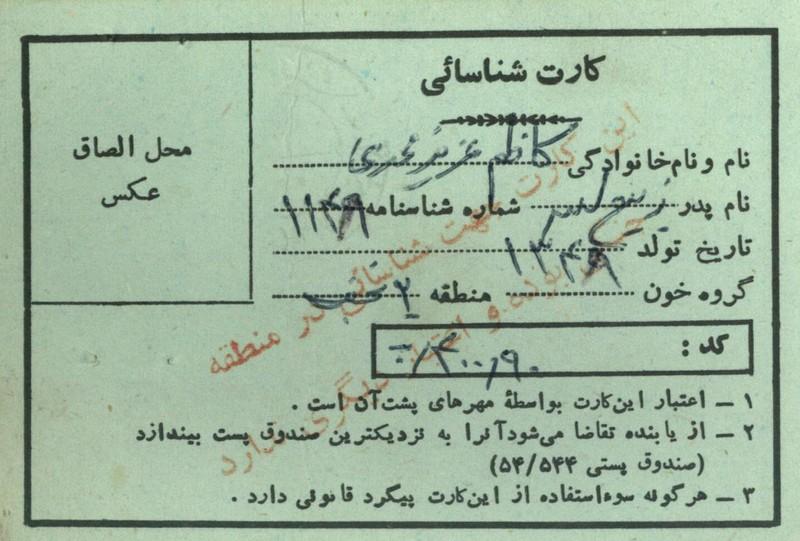 کارت شناسائی
محل الصاق
عکس
نام و نام‌خانوادگی کاظم عزیز محمدی
نام پدر شماره شناسنامه ۱۱۴۹
تاریخ تولد ۱۳۴۹
گروه خون منطقه ۲
کد :
۱ – اعتبار این‌کارت بواسطهٔ مهرهای پشت‌آن است .
۲ – از یابنده تقاضا می‌شودآنرا به نزدیکترین صندوق پست بیندازد
(صندوق پستی ۵۴/۵۴۴)
۳ – هرگونه سوءاستفاده از این‌کارت پیگرد قانونی دارد .
این کارت جهت شناسائی در منطقه
بوده و دیگری ندارد